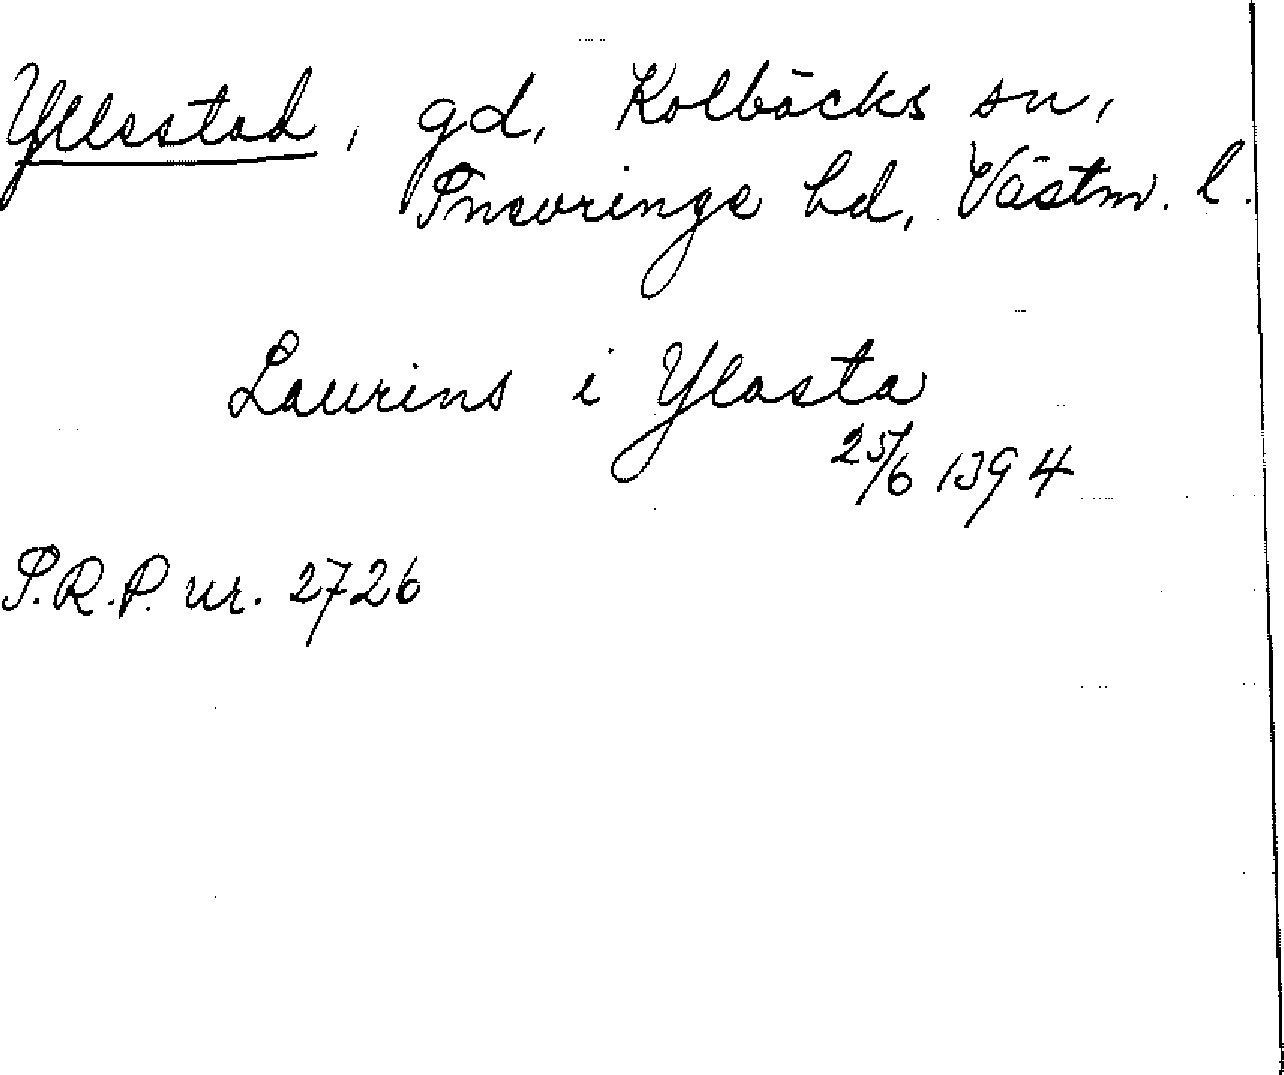 Yllestad, gd, Kolbäcks sn,
Snevringe hd, Västm. l.
Laurins i Ylasta
25/6 1394
S.R.P. nr. 2726